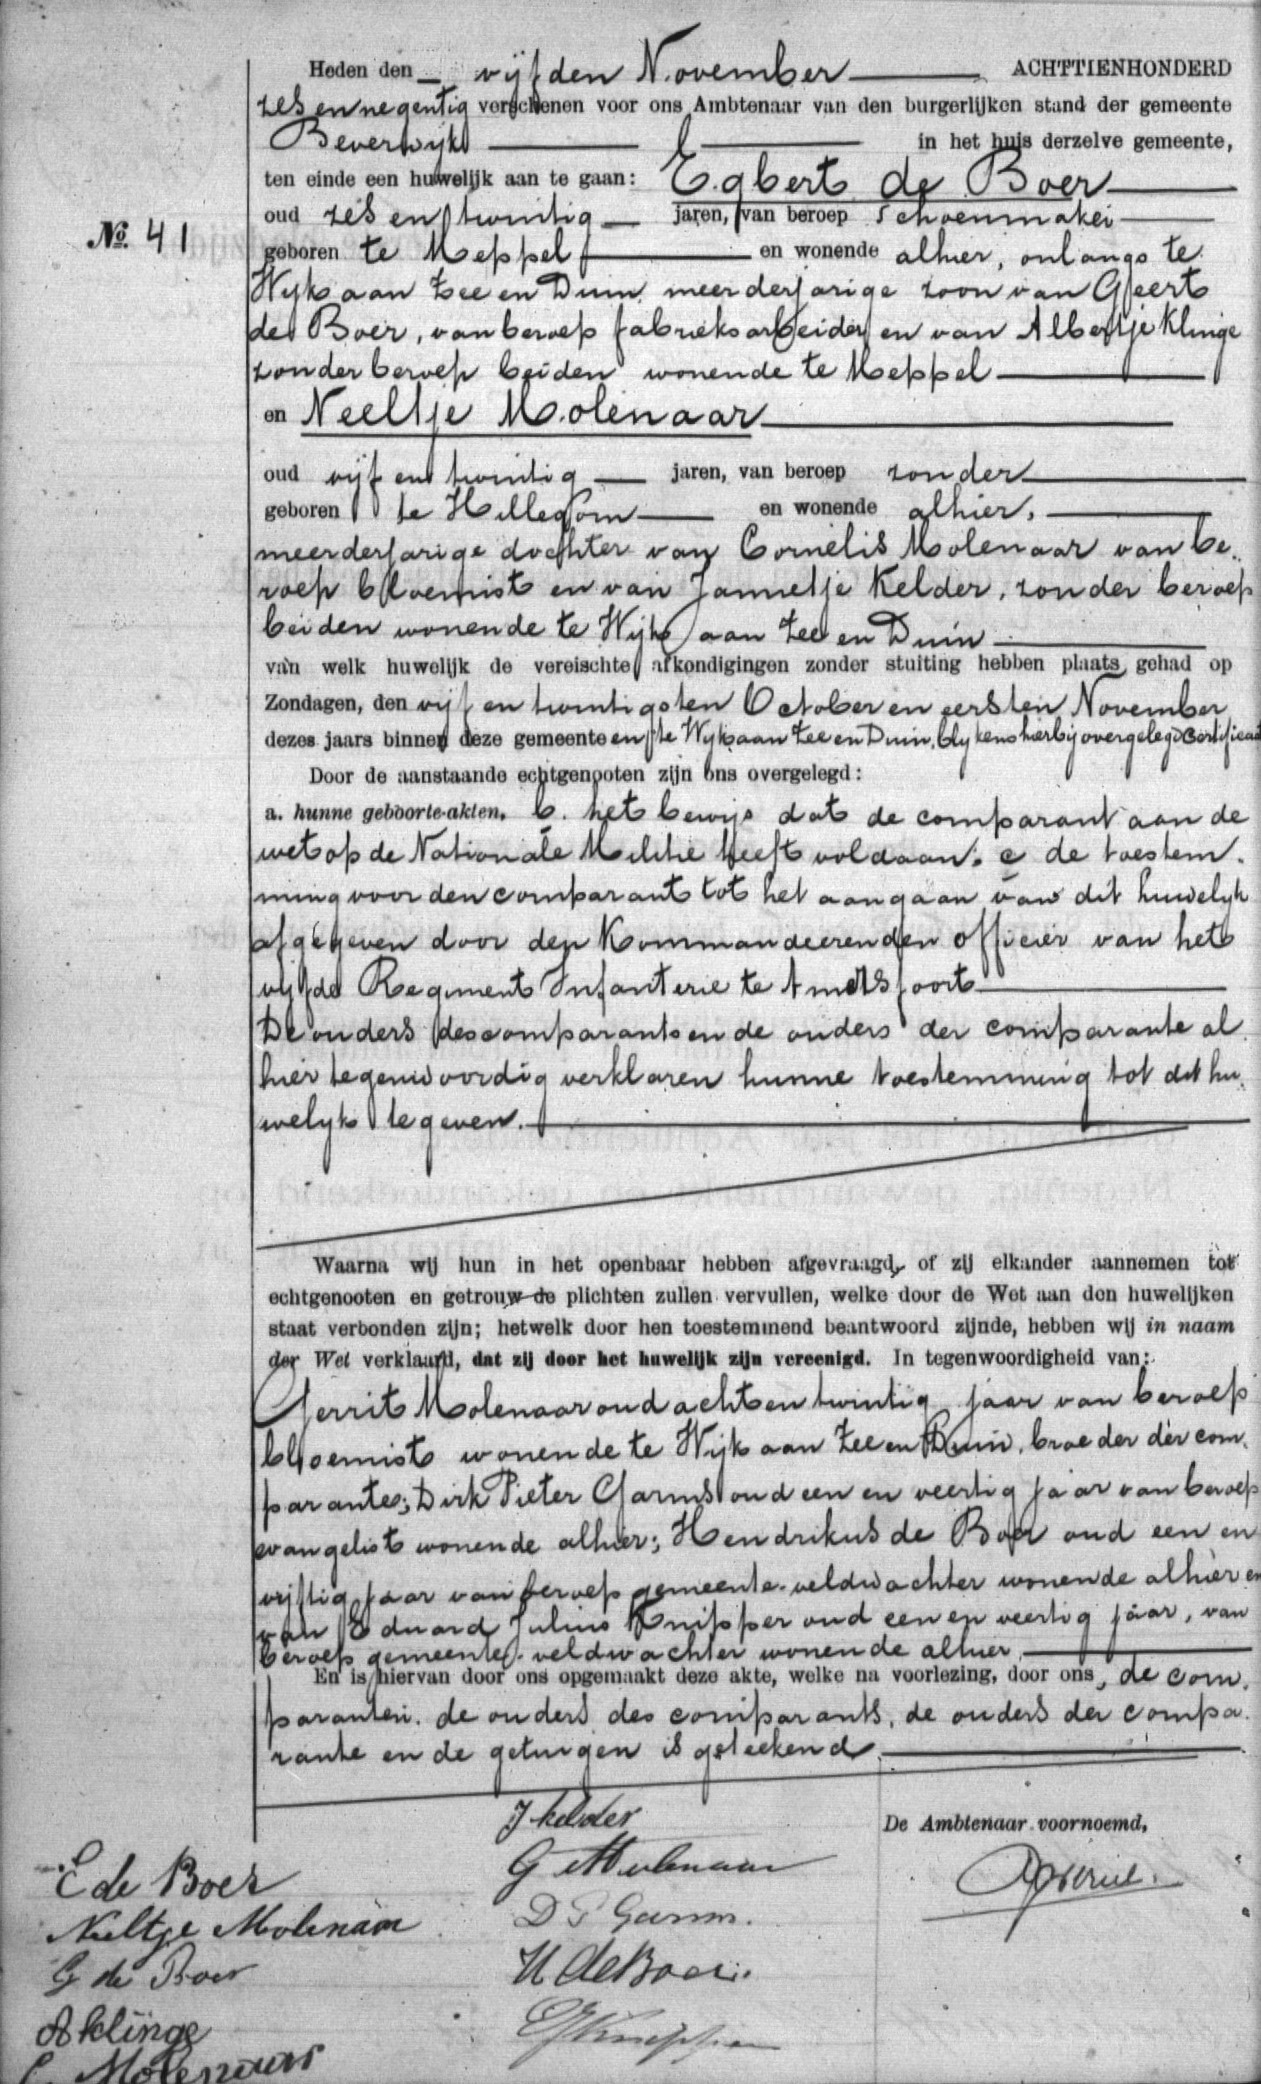 Heden den vijfden November ACHTTIENHONDERD
zes en negentig verschenen voor ons Ambtenaar van den burgerlijken stand der gemeente
Beverwijk in het huis derzelve gemeente,
ten einde een huwelijk aan te gaan: Egbert de Boer
oud zes en twintig jaren, van beroep schoenmaker
No. 41
geboren te Meppel en wonende alhier, onlangs te
Wijk aan Zee en Duin meerderjarige zoon van Geert
de Boer, van beroep fabrieksarbeider en van Albertje Klinge
zonder beroep beiden wonende te Meppel
en Neeltje Molenaar
oud vijf en twintig jaren, van beroep zonder
geboren te Hillegom en wonende alhier,
meerderjarige dochter van Cornelis Molenaar van be-
roep bloemist en van Jannetje Kelder, zonder beroep
beiden wonende te Wijk aan Zee en Duin
van welk huwelijk de vereischte afkondigingen zonder stuiting hebben plaats gehad op
Zondagen, den vijf en twintigsten October en eersten November
dezes jaars binnen deze gemeente en te Wijk aan Zee en Duin, blijkens hierbij overgelegd certificaat
Door de aanstaande echtgenooten zijn ons overgelegd:
a. hunne geboorte-akten, b. het bewijs dat de comparant aan de
wet op de Nationale Militie heeft voldaan. c de toestem-
ming voor den comparant tot het aangaan van dit huwelijk
afgegeven door den Kommandeerenden officier van het
vijfde Regiment Infanterie te Amersfoort
De ouders des comparants en de ouders der comparante al
hier tegenwoordig verklaren hunne toestemming tot dit hu-
welijk te geven.
Waarna wij hun in het openbaar hebben afgevraagd, of zij elkander aannemen tot
echtgenooten en getrouw de plichten zullen vervullen, welke door de Wet aan den huwelijken
staat verbonden zijn; hetwelk door hen toestemmend beantwoord zijnde, hebben wij in naam
der Wet verklaard, dat zij door het huwelijk zijn vereenigd. In tegenwoordigheid van:
Gerrit Molenaar oud acht en twintig jaar van beroep
bloemist wonende te Wijk aan Zee en Duin, broeder der com-
parante; Dirk Pieter Garms oud een en veertig jaar van beroep
evangelist wonende alhier; Hendrikus de Boer oud een en
vijftig jaar van beroep gemeente-veldwachter wonende alhier en
van Eduard Julius Knipper oud een en veertig jaar, van
beroep gemeente-veldwachter wonende alhier
En is hiervan door ons opgemaakt deze akte, welke na voorlezing, door ons, de com-
paranten, de ouders des comparants, de ouders der compa-
rante en de getuigen is geteekend
J kelder
De Ambtenaar voornoemd,
E de Boer
G Molenaar
Neeltje Molenaar
D P Garms.
G de Boer
H de Boer.
A klinge
EJ Knipper
C Molenaar